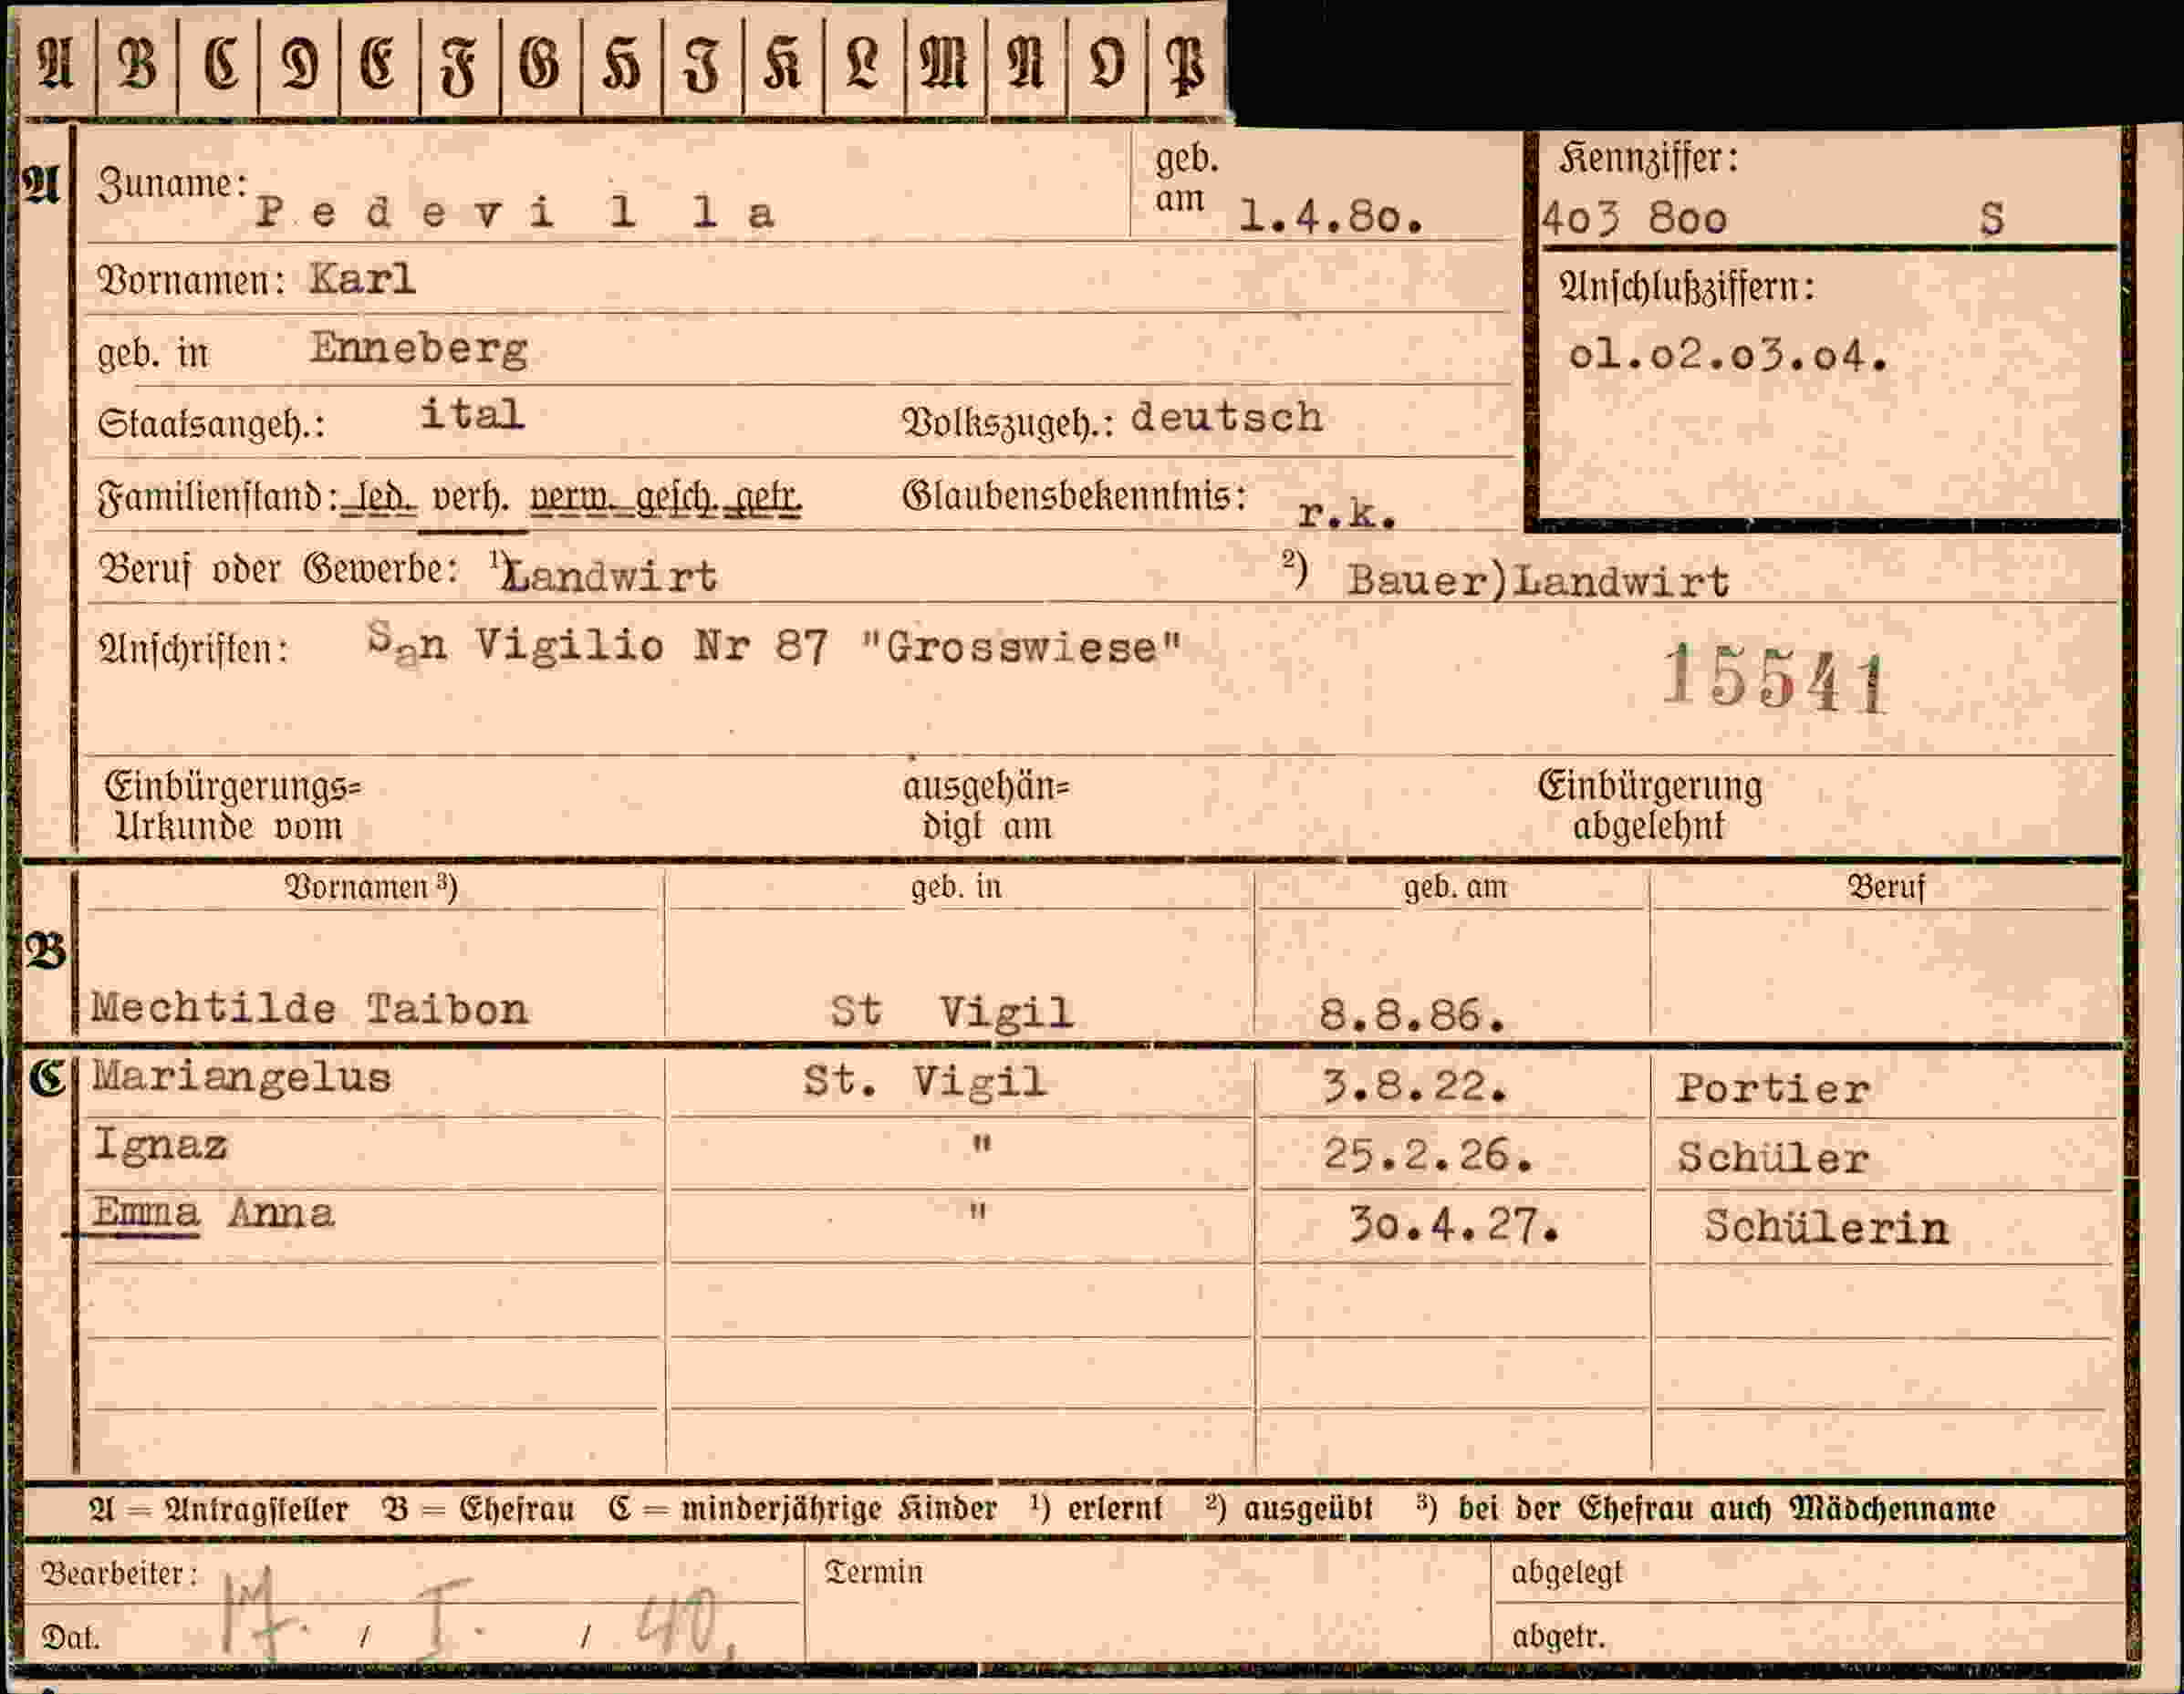 A B C D E F G H I K L M N O P
A Zuname: Pedevilla geb. am 1.4.80. Kennziffer: 403 800 S
Vornamen: Karl Anschlußziffern:
geb. in Enneberg 01.02.03.04.
Staatsangeh.: ital Volkszugeh.: deutsch
Familienstand: led. verh. verw. gesch. getr. Glaubensbekenntnis: r.k.
Beruf oder Gewerbe: 1) Landwirt 2) Bauer)Landwirt
Anschriften: San Vigilio Nr 87 "Grosswiese" 15541
Einbürgerungs= ausgehän= Einbürgerung
Urkunde vom digt am abgelehnt
Vornamen 3) geb. in geb. am Beruf
B
Mechtilde Taibon St Vigil 8.8.86.
C Mariangelus St. Vigil 3.8.22. Portier
Ignaz " 25.2.26. Schüler
Emma Anna " 30.4.27. Schülerin
A = Antragsteller B = Ehefrau C = minderjährige Kinder 1) erlernt 2) ausgeübt 3) bei der Ehefrau auch Mädchenname
Bearbeiter: Termin abgelegt
Dat. 17. / I. / 40. abgetr.